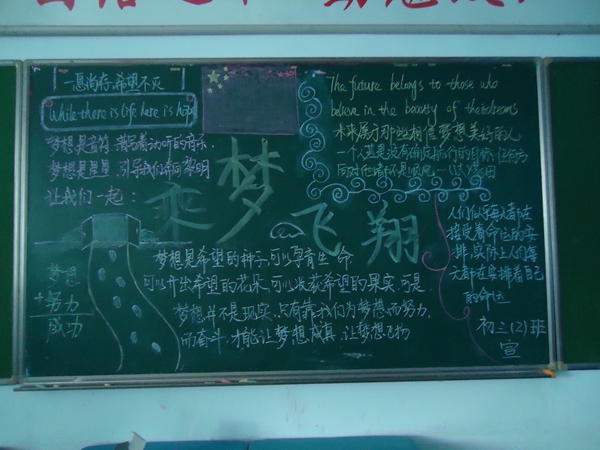 一息尚存,希望不灭
While there is life here is hope
梦想是音符,谱写着动听的音乐.
梦想是星星,引导我们奔向黎明
让我们一起:
乘梦飞翔
The future belongs to those who
believe in the beauty of their dreams
未来属于那些相信梦想美好的人
一个人若是没有确定航行的目标,任何方
向对他来说都不是顺风
梦想是希望的种子,可以孕育生命
可以开出希望的花朵,可以收获希望的果实.可是
梦想并不是现实,只有靠我们为梦想而努力,
而奋斗.才能让梦想成真,让梦想飞扬
梦想
+努力
成功
人们似乎每天在
接受着命运的安
排,实际上人们每
天都在安排着自己
的命运
初三(2)班
宣